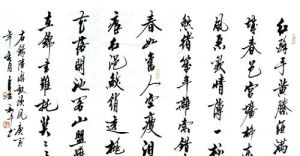 红酥手黄縢酒满
城春色宫墙柳东
风恶欢情薄一怀
绪几年离索错
春如旧人空瘦泪
痕红浥鲛绡透桃
花落闲池阁山盟
在锦书难托莫
右录陆游钗头凤